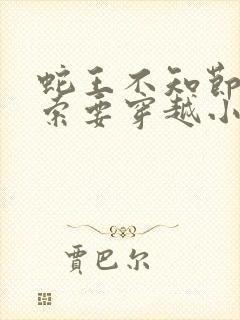 蛇王不知節
索要穿越小
賈巴尔